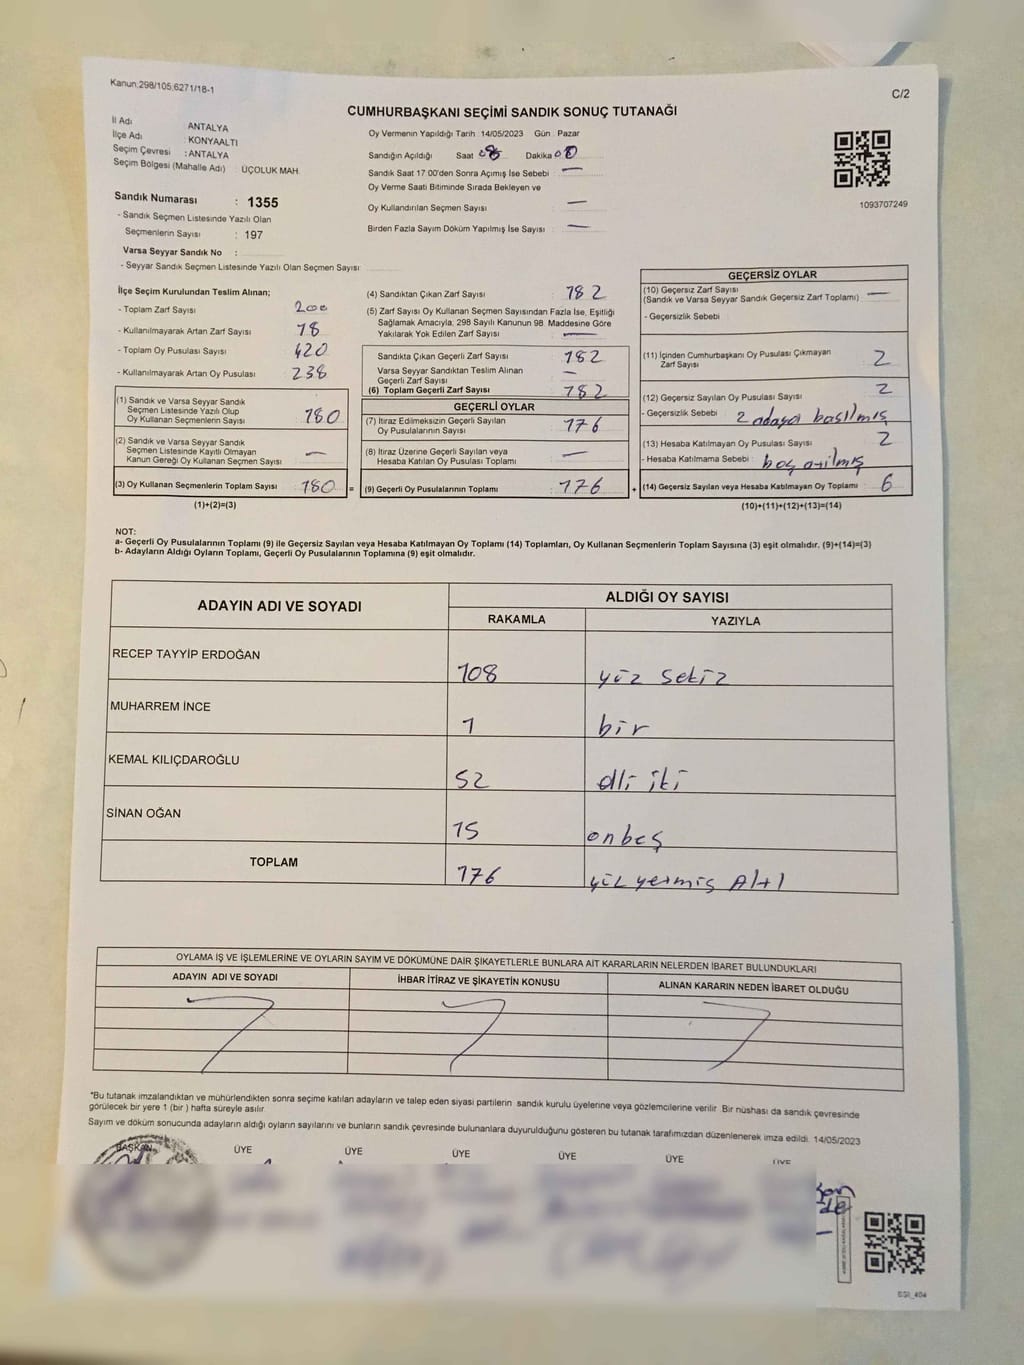 Kanun:298/105;6271/18-1
C/2
CUMHURBAŞKANI SEÇİMİ SANDIK SONUÇ TUTANAĞI
İl Adı : ANTALYA
İlçe Adı : KONYAALTI
Seçim Çevresi : ANTALYA
Seçim Bölgesi (Mahalle Adı) : ÜÇOLUK MAH.
Sandık Numarası : 1355
- Sandık Seçmen Listesinde Yazılı Olan
Seçmenlerin Sayısı : 197
Varsa Seyyar Sandık No :
- Seyyar Sandık Seçmen Listesinde Yazılı Olan Seçmen Sayısı
Oy Vermenin Yapıldığı Tarih : 14/05/2023 Gün : Pazar
Sandığın Açıldığı Saat 08 Dakika 00
Sandık Saat 17:00'den Sonra Açımış İse Sebebi —
Oy Verme Saati Bitiminde Sırada Bekleyen ve
Oy Kullandırılan Seçmen Sayısı —
Birden Fazla Sayım Döküm Yapılmış İse Sayısı —
1093707249
İlçe Seçim Kurulundan Teslim Alınan;
- Toplam Zarf Sayısı 200
- Kullanılmayarak Artan Zarf Sayısı 18
- Toplam Oy Pusulası Sayısı 420
- Kullanılmayarak Artan Oy Pusulası 238
(1) Sandık ve Varsa Seyyar Sandık
Seçmen Listesinde Yazılı Olup
Oy Kullanan Seçmenlerin Sayısı 180
(2) Sandık ve Varsa Seyyar Sandık
Seçmen Listesinde Kayıtlı Olmayan
Kanun Gereği Oy Kullanan Seçmen Sayısı —
(3) Oy Kullanan Seçmenlerin Toplam Sayısı 180 =
(1)+(2)=(3)
(4) Sandıktan Çıkan Zarf Sayısı 182
(5) Zarf Sayısı Oy Kullanan Seçmen Sayısından Fazla İse, Eşitliği
Sağlamak Amacıyla; 298 Sayılı Kanunun 98. Maddesine Göre
Yakılarak Yok Edilen Zarf Sayısı —
Sandıkta Çıkan Geçerli Zarf Sayısı 182
Varsa Seyyar Sandıktan Teslim Alınan
Geçerli Zarf Sayısı —
(6) Toplam Geçerli Zarf Sayısı 182
GEÇERLİ OYLAR
(7) İtiraz Edilmeksizin Geçerli Sayılan
Oy Pusulalarının Sayısı 176
(8) İtiraz Üzerine Geçerli Sayılan veya
Hesaba Katılan Oy Pusulası Toplamı —
(9) Geçerli Oy Pusulalarının Toplamı 176 +
GEÇERSİZ OYLAR
(10) Geçersiz Zarf Sayısı
(Sandık ve Varsa Seyyar Sandık Geçersiz Zarf Toplamı) —
- Geçersizlik Sebebi :
(11) İçinden Cumhurbaşkanı Oy Pusulası Çıkmayan
Zarf Sayısı 2
(12) Geçersiz Sayılan Oy Pusulası Sayısı 2
- Geçersizlik Sebebi : 2 adaya basılmış
(13) Hesaba Katılmayan Oy Pusulası Sayısı 2
- Hesaba Katılmama Sebebi : boş atılmış
(14) Geçersiz Sayılan veya Hesaba Katılmayan Oy Toplamı 6
(10)+(11)+(12)+(13)=(14)
NOT:
a- Geçerli Oy Pusulalarının Toplamı (9) ile Geçersiz Sayılan veya Hesaba Katılmayan Oy Toplamı (14) Toplamları, Oy Kullanan Seçmenlerin Toplam Sayısına (3) eşit olmalıdır. (9)+(14)=(3)
b- Adayların Aldığı Oyların Toplamı, Geçerli Oy Pusulalarının Toplamına (9) eşit olmalıdır.
ADAYIN ADI VE SOYADI ALDIĞI OY SAYISI
RAKAMLA YAZIYLA
RECEP TAYYİP ERDOĞAN 108 yüz sekiz
MUHARREM İNCE 1 bir
KEMAL KILIÇDAROĞLU 52 elli iki
SİNAN OĞAN 15 onbeş
TOPLAM 176 yüz yetmiş Altı
OYLAMA İŞ VE İŞLEMLERİNE VE OYLARIN SAYIM VE DÖKÜMÜNE DAİR ŞİKAYETLERLE BUNLARA AİT KARARLARIN NELERDEN İBARET BULUNDUKLARI
ADAYIN ADI VE SOYADI İHBAR İTİRAZ VE ŞİKAYETİN KONUSU ALINAN KARARIN NEDEN İBARET OLDUĞU
*Bu tutanak imzalandıktan ve mühürlendikten sonra seçime katılan adayların ve talep eden siyasi partilerin sandık kurulu üyelerine veya gözlemcilerine verilir. Bir nüshası da sandık çevresinde
görülecek bir yere 1 (bir) hafta süreyle asılır.
Sayım ve döküm sonucunda adayların aldığı oyların sayılarını ve bunların sandık çevresinde bulunanlara duyurulduğunu gösteren bu tutanak tarafımızdan düzenlenerek imza edildi. 14/05/2023
BAŞKAN ÜYE ÜYE ÜYE ÜYE ÜYE ÜYE